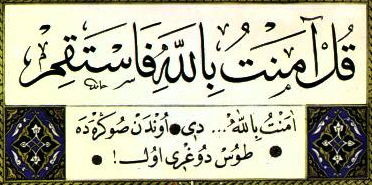 قُلْ آمَنْتُ بِاللّٰهِ فَاسْتَقِمْ
اٰمَنْتُ بِاللّٰهِ... دى، اوندن صوكره ده
طوس دوغرى اول!